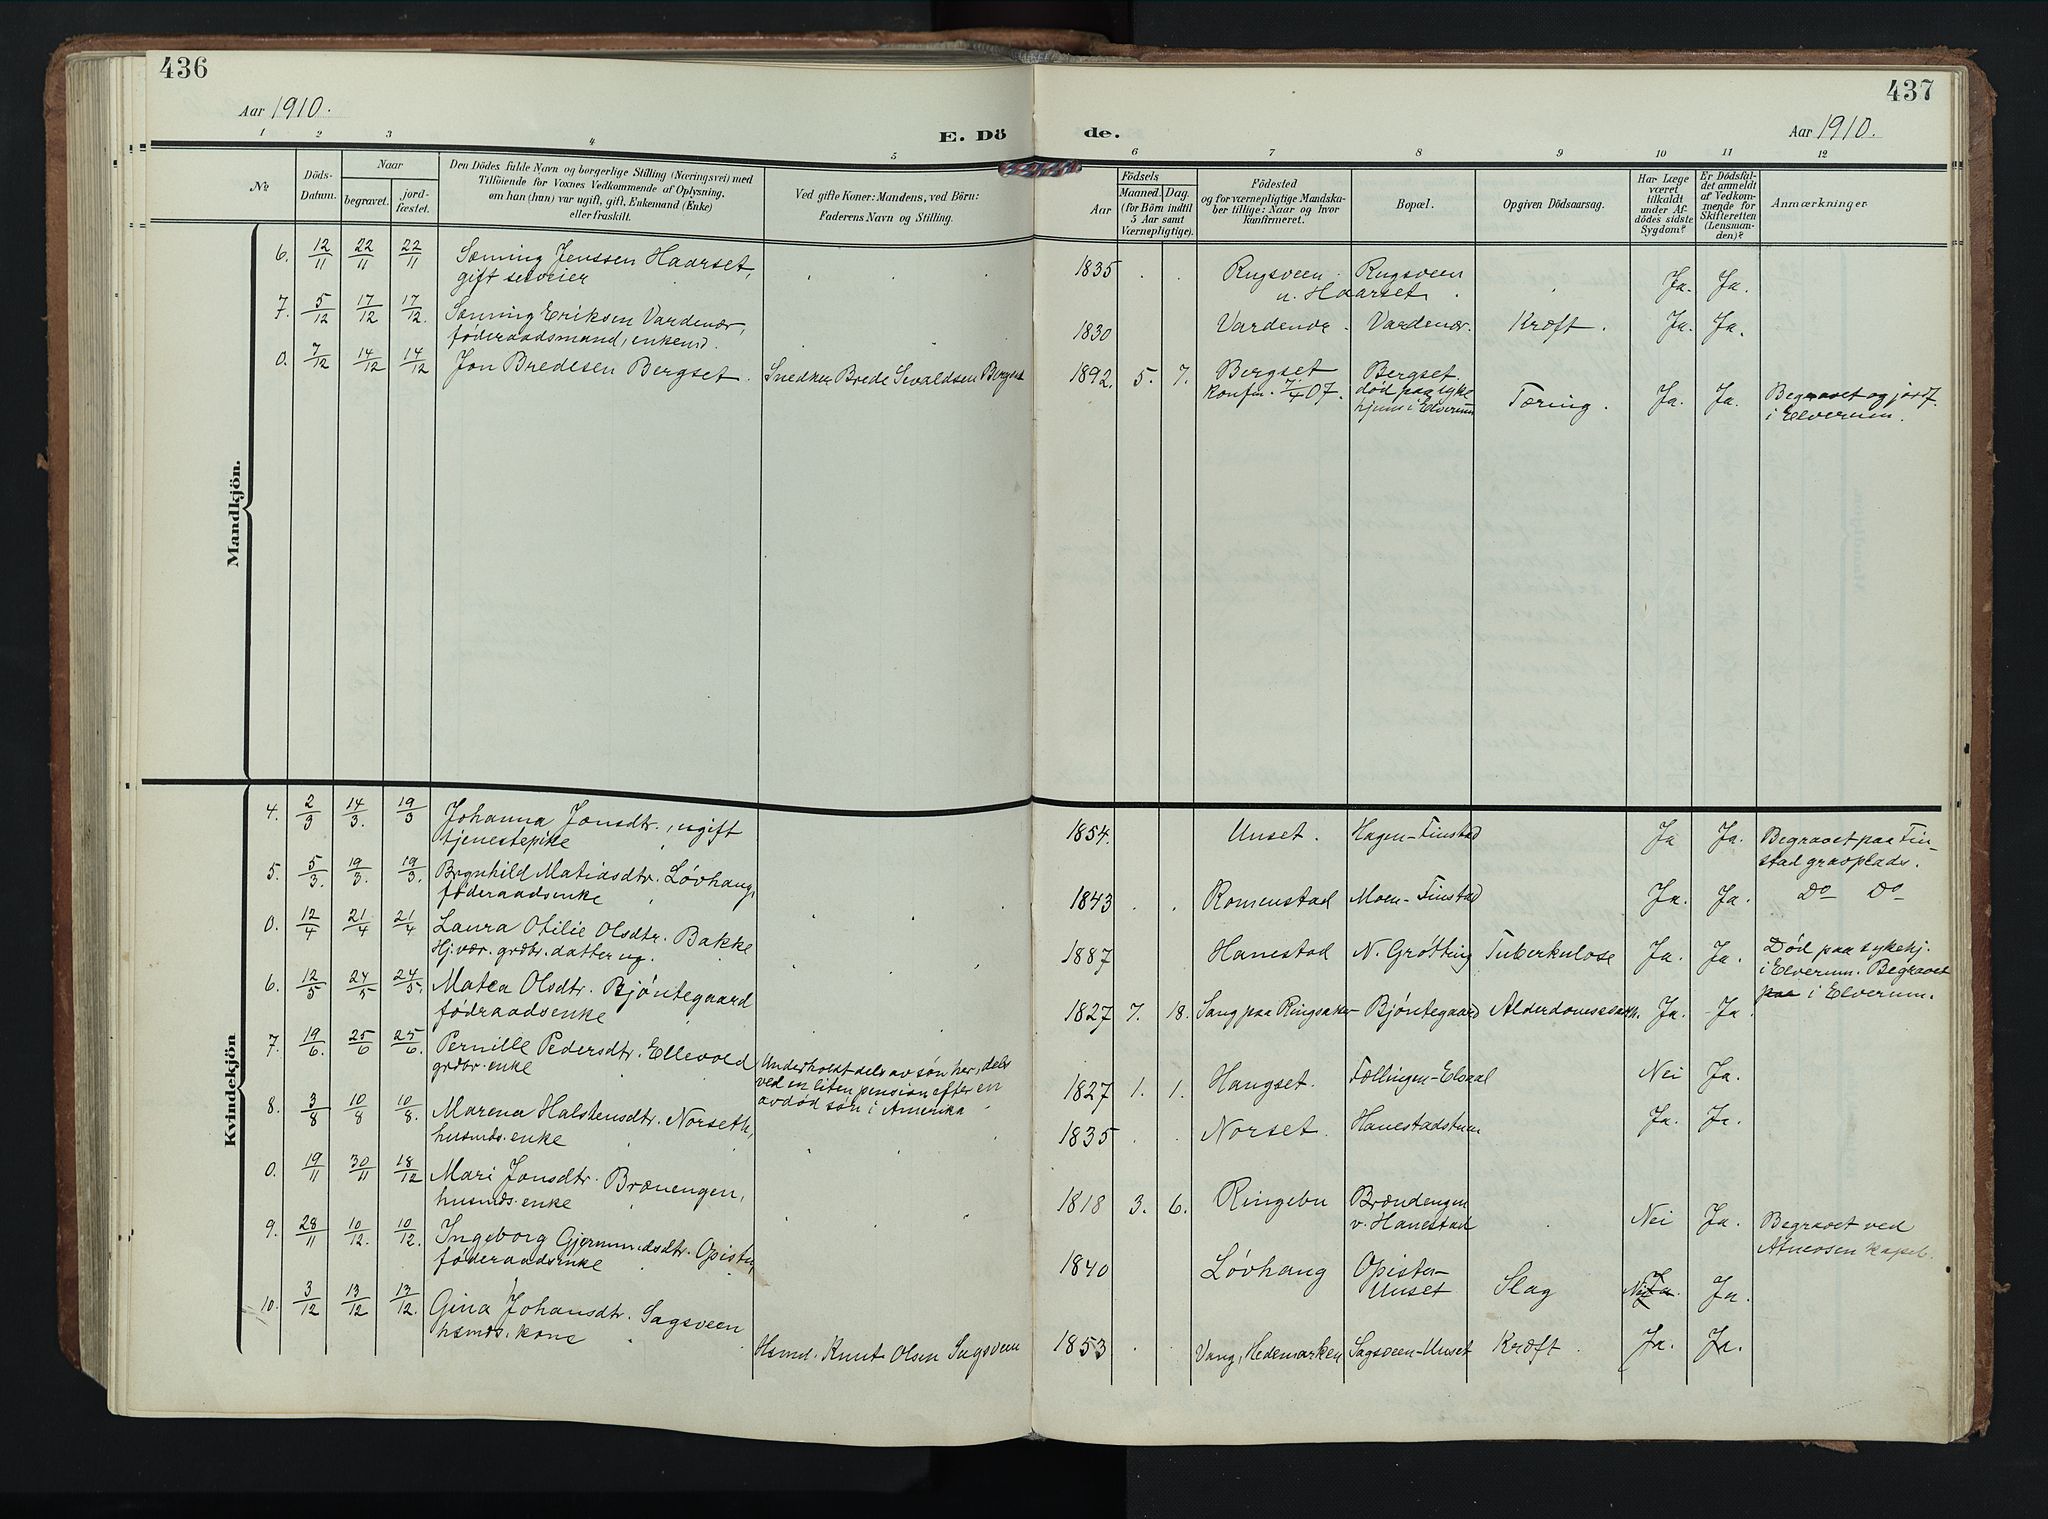 436
Aar 1910.
E. Dö
1 2 3 4 5
№
Döds-
Datum.
Naar
begravet.
jord-
fæstet.
Den Dödes fulde Navn og borgerlige Stilling (Næringsvei) med
Tilföiende for Voxnes Vedkommende af Oplysning,
om han (hun) var ugift, gift, Enkemand (Enke)
eller fraskilt.
Ved gifte Koner: Mandens, ved Börn:
Faderens Navn og Stilling.
Mandkjön.
6. 12/11 22/11 22/11 Sæming Jenssen Haarset,
gift selveier
7. 5/12 17/12 17/12. Sæming Eriksen Vardenær,
føderaadsmand, enkemd.
0. 7/12 14/12 14/12 Jon Bredesen Bergset. Snedker Brede Sivaldsen Bergset
Kvindekjön
4. 2/3 14/3. 19/3 Johanna Jonsdtr., ugift
tjenestepike
5. 5/3. 19/3. 19/3. Brynhild Matiasdtr. Løvhaug,
føderaadsenke
0. 12/4 21/4 21/4 Laura Otilie Olsdtr. Bakke
Hj.vær. grdbr. datter ug.
6. 12/5 24/5 24/5. Matea Olsdtr. Bjøntegaard
fødraadsenke
7. 19/6. 25/6 25/6. Pernille Pedersdtr. Ellevold
grdbr. enke
Underholdt dels av søn her, dels
ved en liten pension efter en
avdød søn i Amerika
8. 3/8 10/8 10/8. Marena Halstensdtr. Norseth,
husmds. enke
0. 19/11 30/11 18/12 Mari Jonsdtr. Brænengen,
husmds. enke
9. 28/11 10/12. 10/12. Ingeborg Gjermundsdtr. Opistu,
føderaadsenke
10. 3/12 13/12 13/12. Gina Johansdtr. Sagsveen
hsmds. kone
Hsmd. Knut Olsen Sagsveen
437
de.
Aar 1910.
6 7 8 9 10 11 12
Födsels
Aar
Maaned. Dag.
(for Börn indtil
5 Aar samt
Værnepligtige).
Födested
og for værnepligtige Mandska-
ber tillige: Naar og hvor
konfirmeret.
Bopæl.
Opgiven Dödsaarsag.
Har Læge
været
tilkaldt
under Af-
dödes sidste
Sygdom?
Er Dödsfal-
det anmeldt
af Vedkom-
mende for
Skifteretten
(Lensman-
den)?
Anmærkninger
1835 Rugsveen Rugsveen Ja. Ja.
u. Haarset
1830 Vardenær. Vardenær. Kræft. Ja. Ja.
1892. 5. 7. Bergset Bergset.
konfm. 7/4 07. død paa syke
hjem i Elverum Tæring. Ja. Ja. Begravet og jordf.
i Elverum.
1854. Unset. Hagen-Finstad Ja Ja. Begravet paa Fin-
stad gravplads.
1843 Romenstad Moen-Finstad Ja. Ja. Do Do
1887 Hanestad N. Grøtting Tuberkulose Ja. Ja. Død paa sykehj.
i Elverum. Begravet
paa i Elverum.
1827 7. 18. Sang paa Ringsaker Bjøntegaard Alderdomssvakh. Ja. Ja
1827 1. 1. Haugset. Fællingen-Elvaal Nei Ja.
1835 Norset. Hanestadstuen Ja. Ja.
1818 3. 6. Ringebu Brændengen
v. Hanestad Nei Ja. Begravet ved
Atneosen kapel.
1840 Løvhaug Opistu-
Unset Slag Ja. Ja.
1853 Vang, Hedemarken Sagsveen-Unset Kræft Ja. Ja.